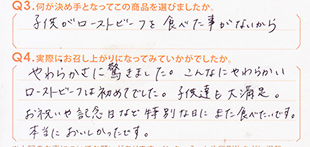 Q3.何が決め手となってこの商品を選びましたか。
子供がローストビーフを食べた事がないから
Q4.実際にお召し上がりになってみていかがでしたか。
やわらかさに驚きました。こんなにやわらかい
ローストビーフは初めてでした。子供達も大満足。
お祝いや記念日など特別な日にまた食べたいです。
本当においしかったです。